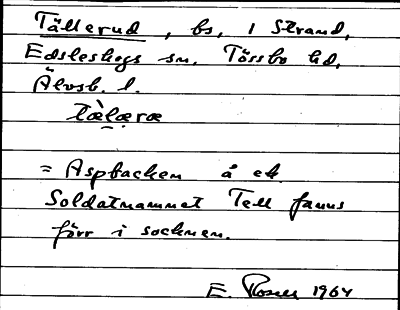 Tällerud, bs, i Strand,
Edsleskogs sn. Tössbo hd,
Älvsb. l.
= Aspbacken å ek.
Soldatnamnet Tell fanns
förr i socknen.
E. Rosell 1964